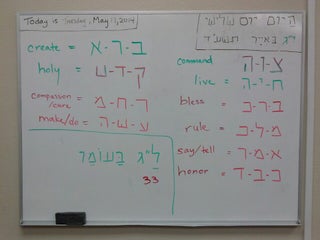 Today is Tuesday, May 13, 2014
היום יום שלישי
י״ג באייר תשע״ד
create = ב-ר-א
holy = ק-ד-ש
compassion/care = ר-ח-מ
make/do = ע-ש-ה
command = צ-ו-ה
live = ח-י-ה
bless = ב-ר-כ
rule = מ-ל-כ
say/tell = א-מ-ר
honor = כ-ב-ד
לַ״ג בַּעוֹמֶר
33